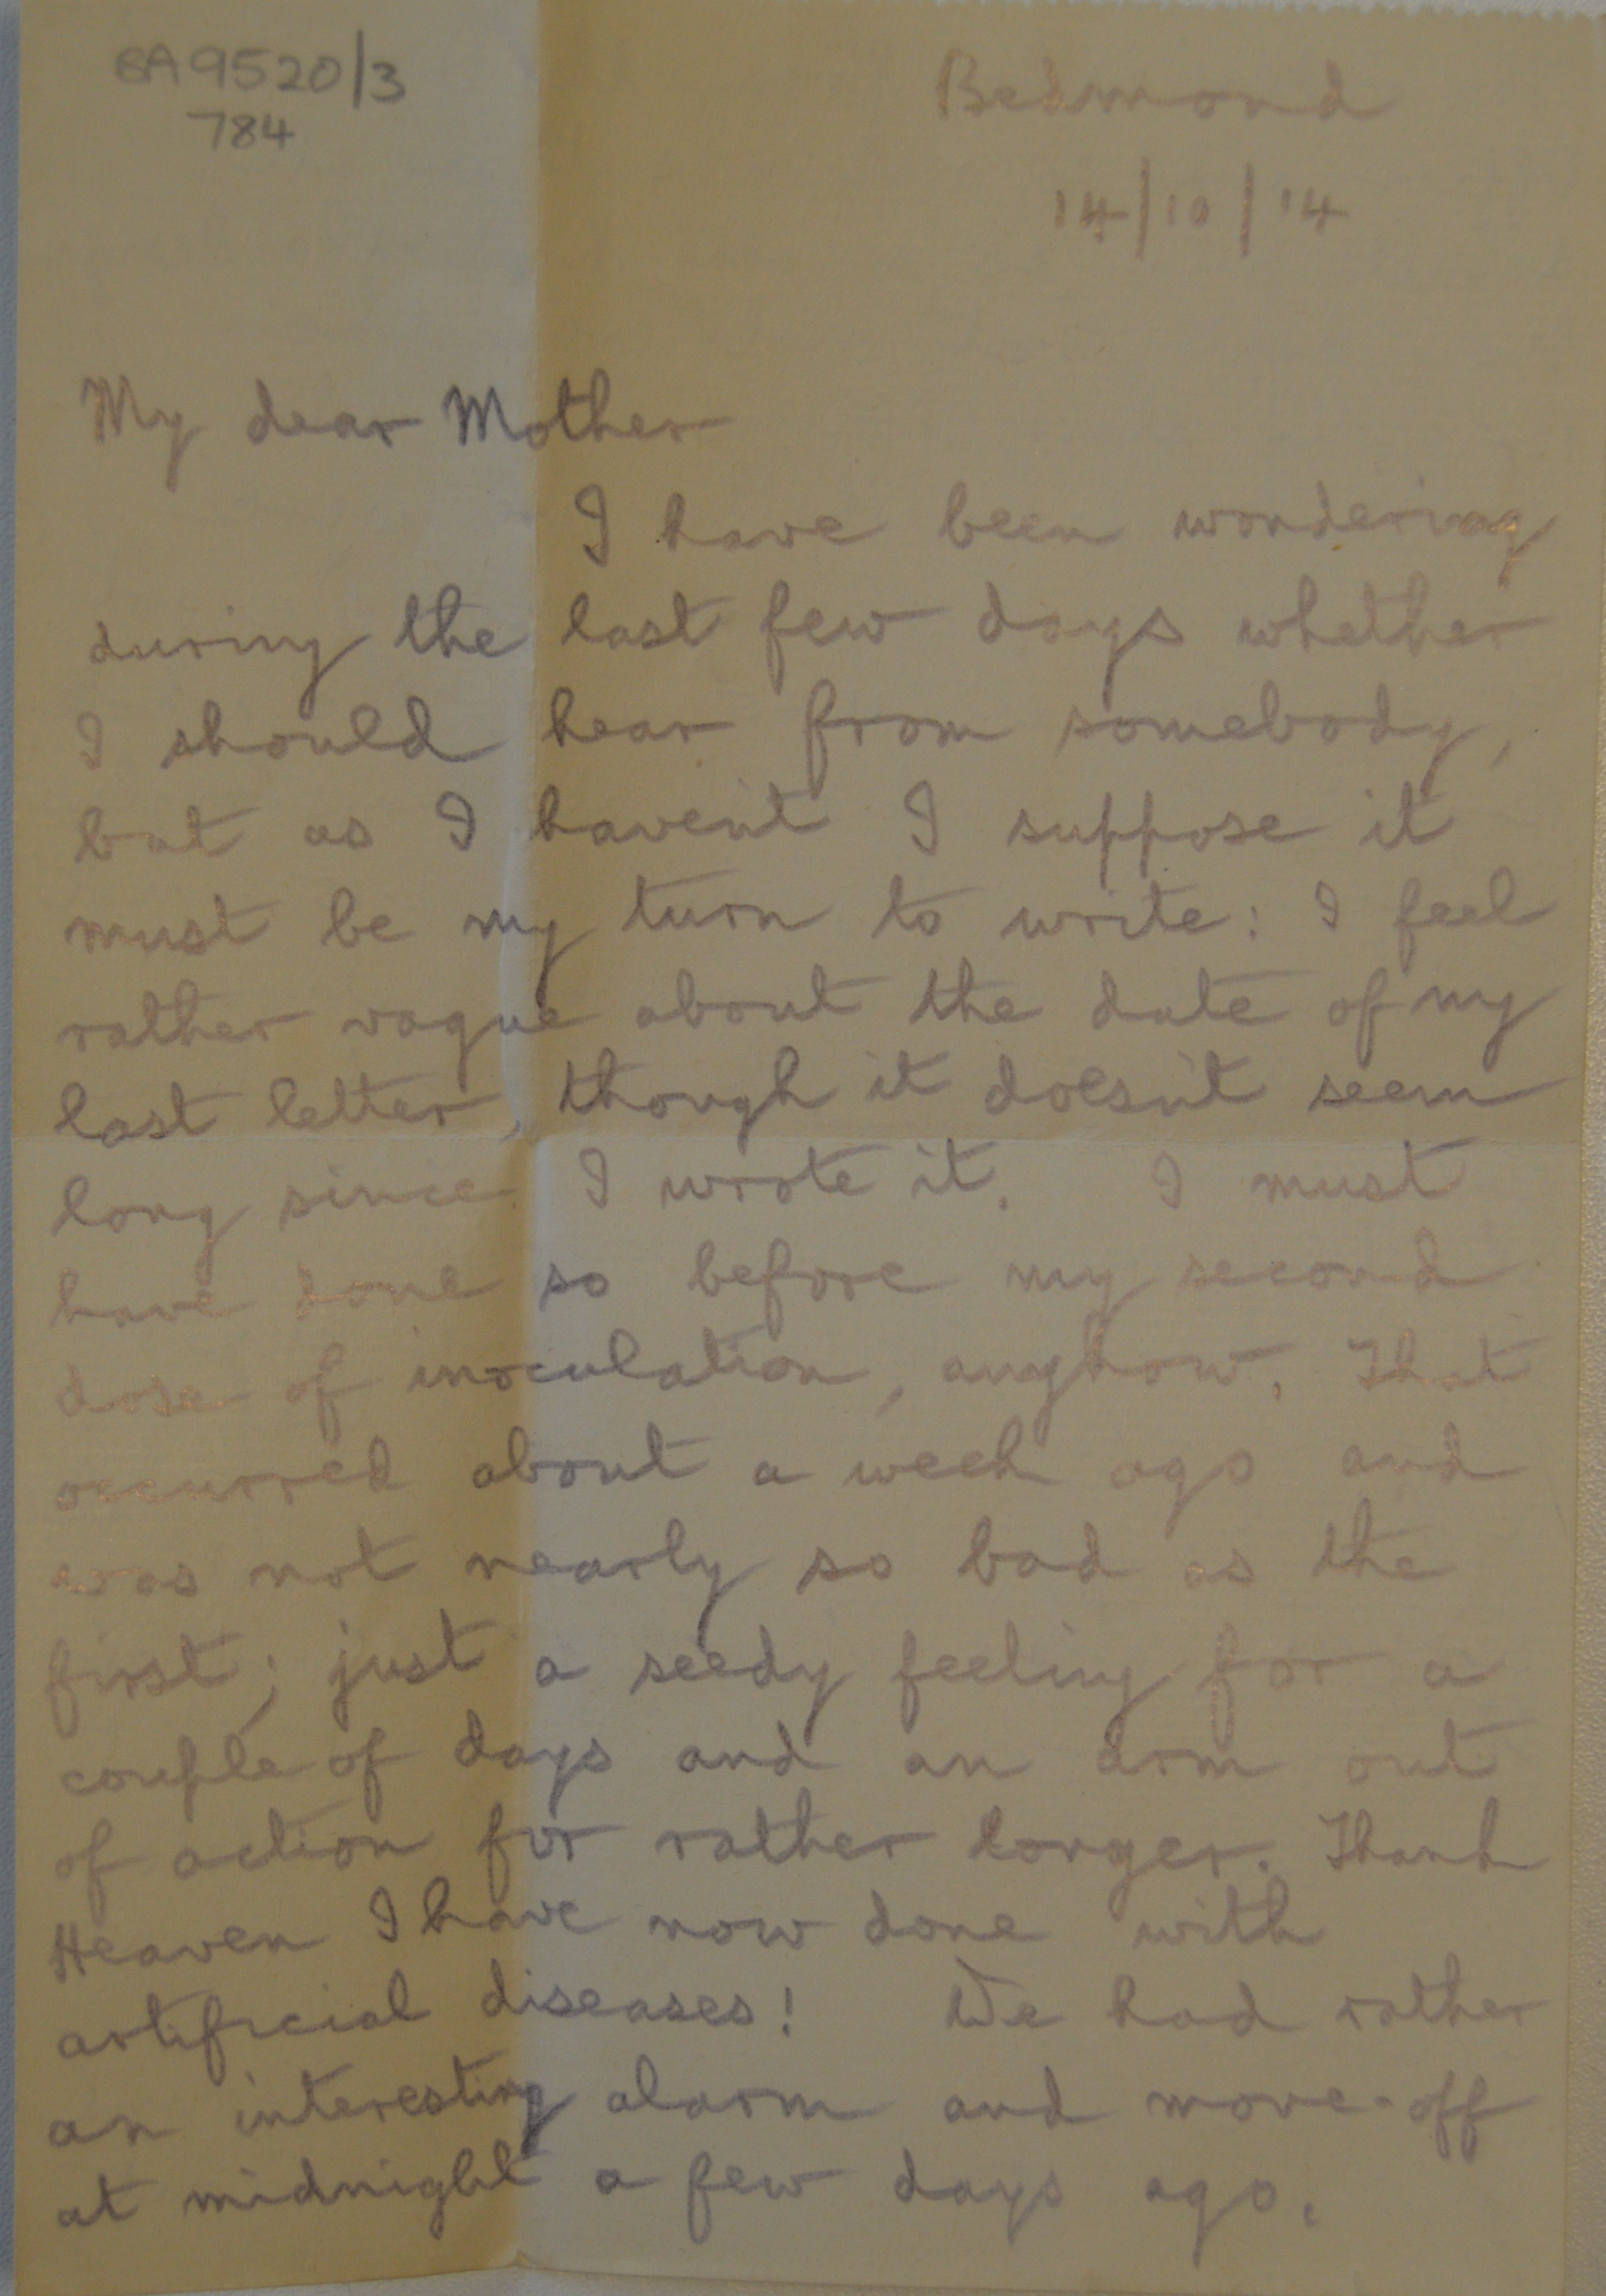 BA9520/3
784
Bedmond
14/10/14
My dear Mother
I have been wondering
during the last few days whether
I should hear from somebody,
but as I haven't I suppose it
must be my turn to write: I feel
rather vague about the date of my
last letter, though it doesn't seem
long since I wrote it. I must
have done so before my second
dose of inoculation, anyhow. That
occurred about a week ago and
was not nearly so bad as the
first; just a seedy feeling for a
couple of days and an arm out
of action for rather longer. Thank
Heaven I have now done with
artificial diseases! We had rather
an interesting alarm and move-off
at midnight a few days ago.